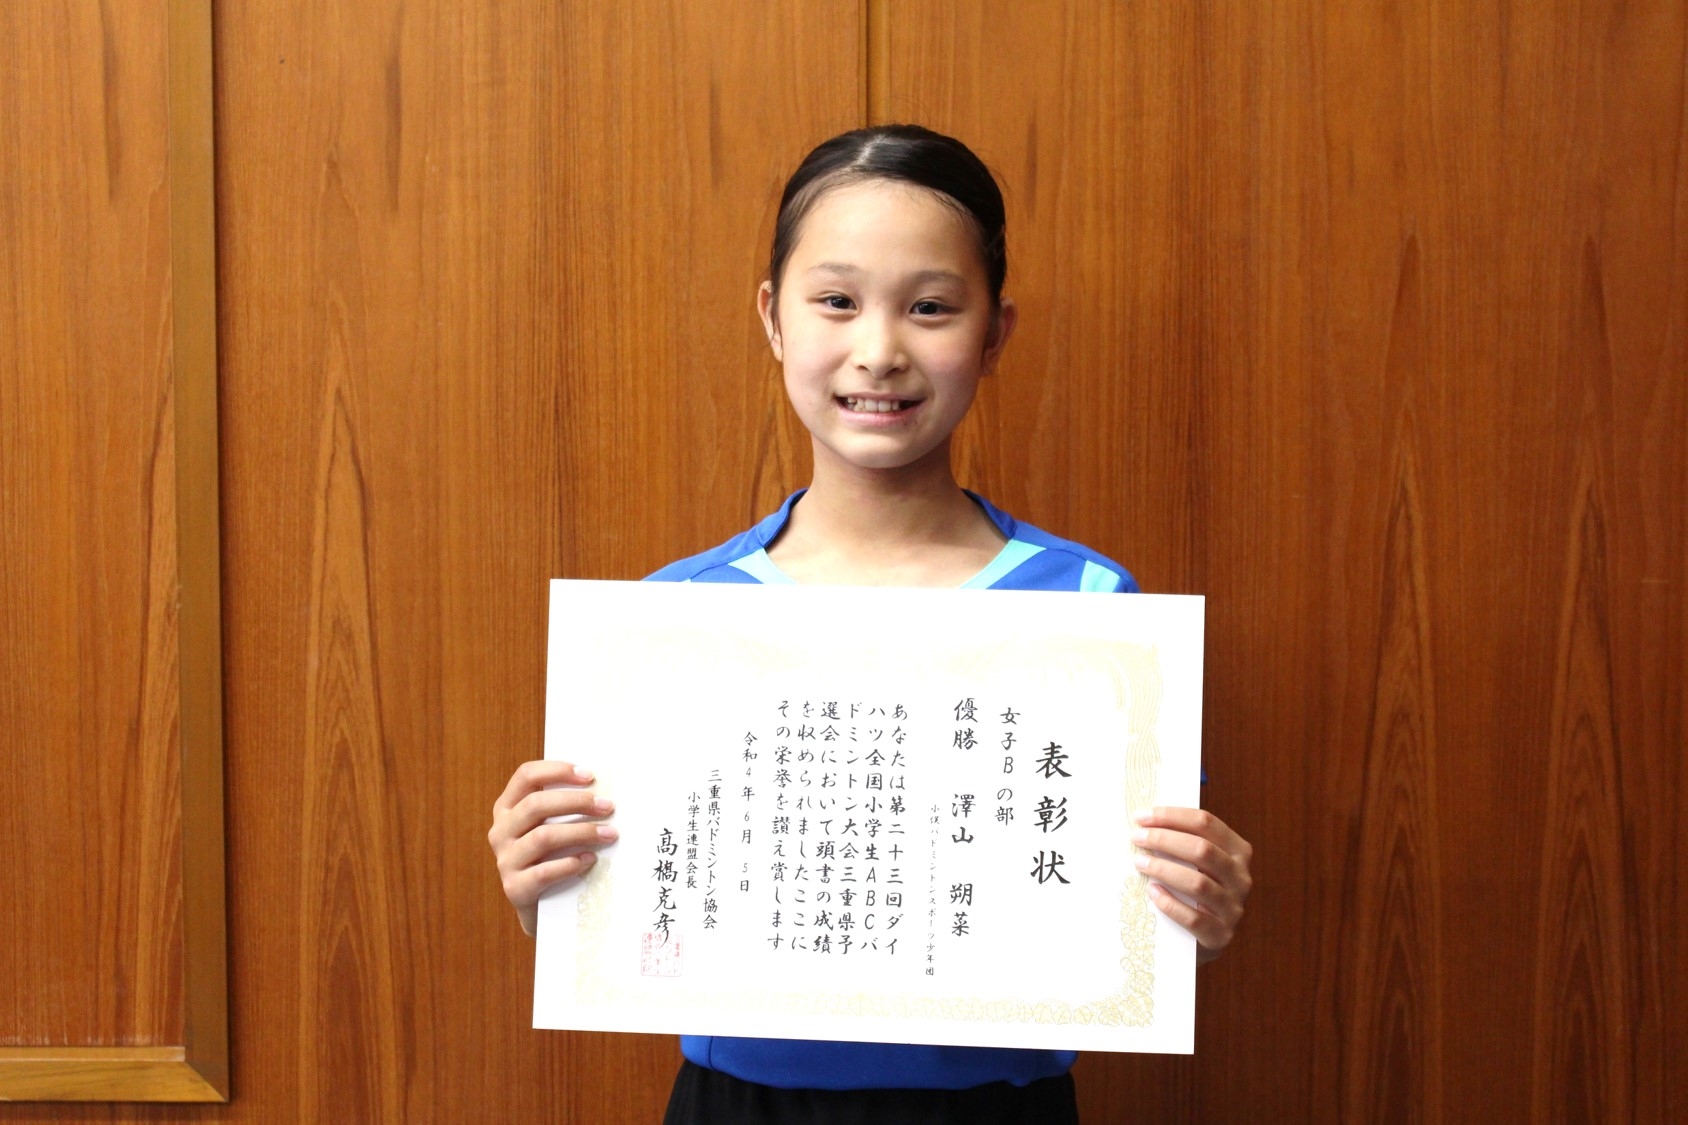 表彰状
女子Bの部
優勝 澤山 朔菜
小俣バドミントンスポーツ少年団
あなたは第二十三回ダイ
ハツ全国小学生ABCバ
ドミントン大会三重県予
選会において頭書の成績
を収められましたここに
その栄誉を讃え賞します
令和4年6月5日
三重県バドミントン協会
小学生連盟会長
髙橋克彦